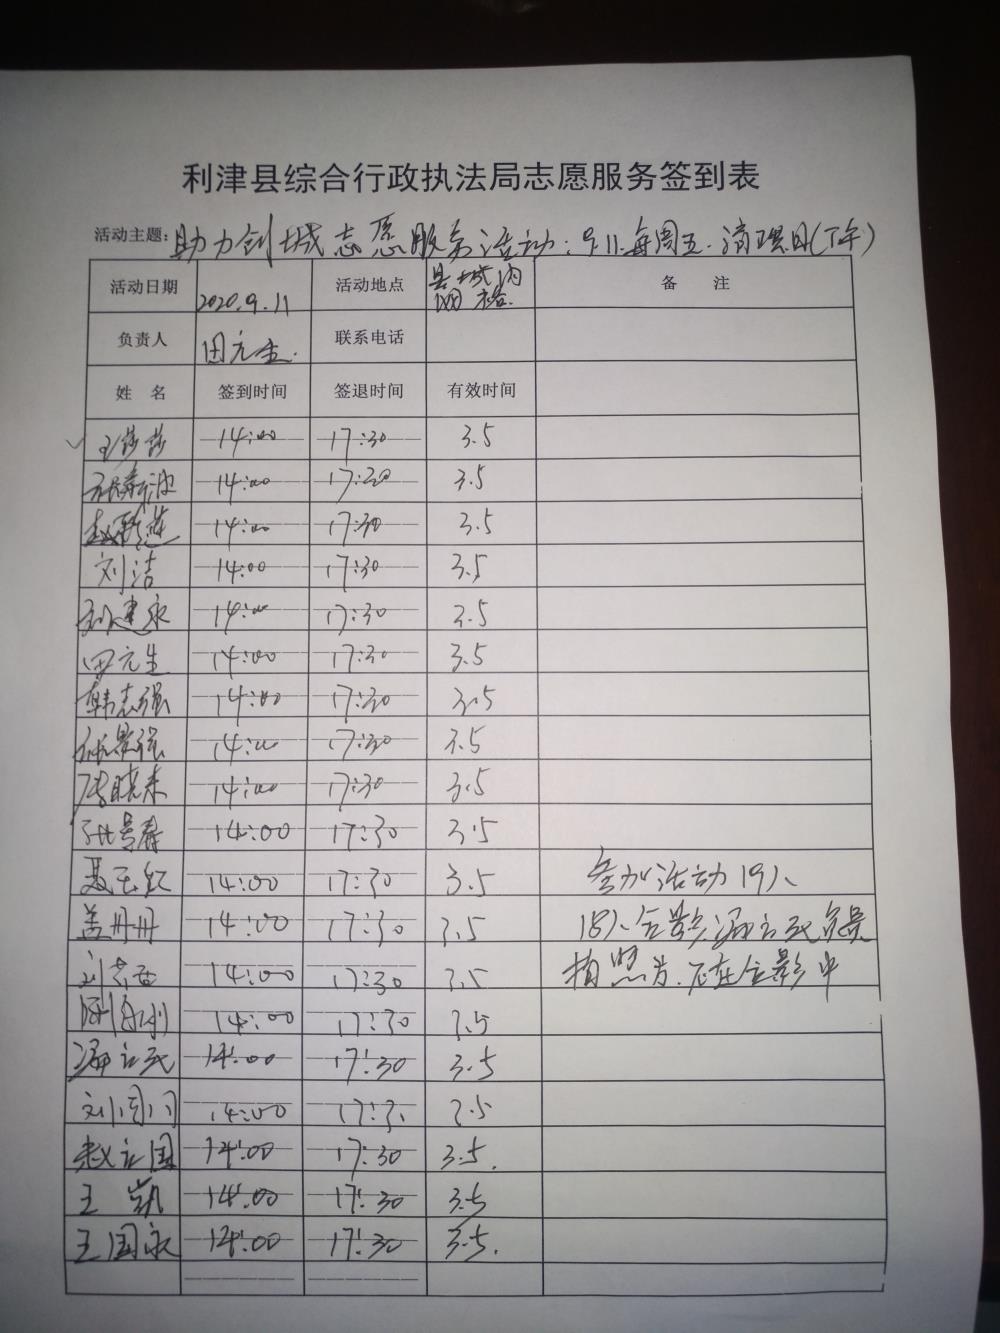 利津县综合行政执法局志愿服务签到表
活动主题: 助力创城志愿服务活动:9.11.每周五.清理日(下午)
活动日期 2020.9.11 活动地点 县城内网格. 备 注
负责人 田元生. 联系电话
姓 名 签到时间 签退时间 有效时间
王莎莎 14:00 17:30 3.5
14:00 17:30 3.5
赵 14:00 17:30 3.5
刘洁 14:00 17:30 3.5
建永 14:00 17:30 3.5
田元生 14:00 17:30 3.5
韩志强 14:00 17:30 3.5
景强 14:00 17:30 3.5
晓东 14:00 17:30 3.5
14:00 17:30 3.5
聂玉红 14:00 17:30 3.5 参加活动19人
盖丹丹 14:00 17:30 3.5 18人合影,
刘 14:00 17:30 3.5 拍照者.不在合影中
14:00 17:30 3.5
14:00 17:30 3.5
刘 14:00 17:3 3.5
赵立国 14:00 17:30 3.5.
王 凯 14:00 17:30 3.5
王国永 14:00 17:30 3.5.